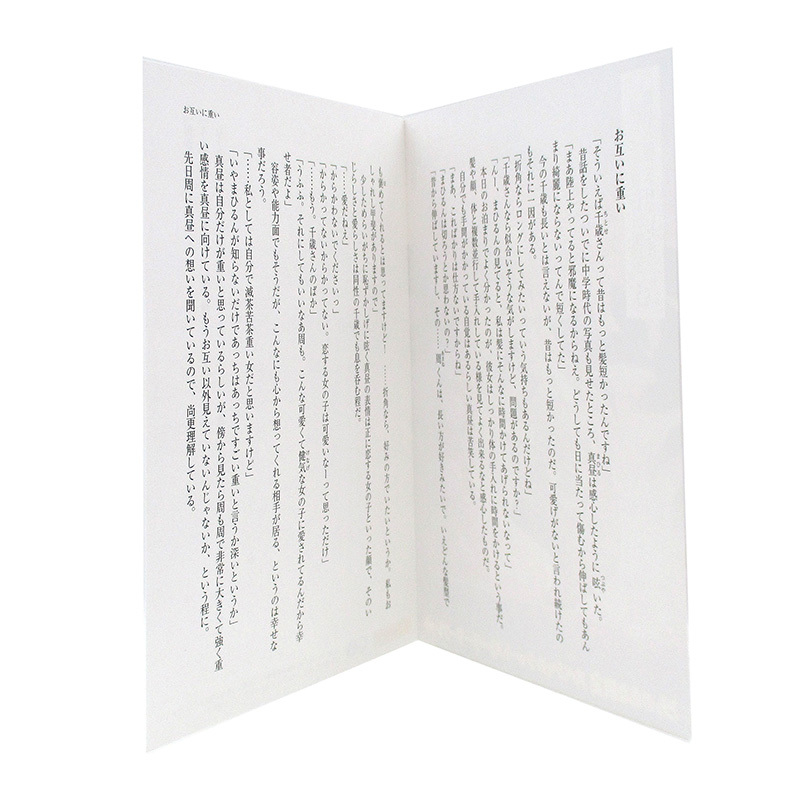 お互いに重い
「そういえば千歳さんって昔はもっと髪短かったんですね」
昔話をしたついでに中学時代の写真も見せたところ、真昼は感心したように呟いた。
「まあ陸上やってると邪魔になるからねえ。どうしても日に当たって傷むから伸ばしてもあん
まり綺麗にならないってんで短くしてた」
今の千歳も長いとは言えないが、昔はもっと短かったのだ。可愛げがないと言われ続けたの
もそれに一因がある。
「折角ならロングにしてみたいっていう気持ちもあるんだけどね」
「千歳さんなら似合いそうな気がしますけど、問題があるのですか？」
「んー、まひるんの見てると、私は髪にそんなに時間かけてあげられないなって」
本日のお泊まりでよく分かったのだが、彼女はしっかり体の手入れに時間をかけるという事だ。
髪や顔、体と複数並行して手入れしている様を見てよく出来るなと感心したものだ。
自分でも手間がかかってる自覚はあるらしい真昼は苦笑している。
「まあ、こればかりは仕方ないですからね」
「まひるんは切ろうとか思わないの？」
「昔から伸ばしていますし、その……周くんは、長い方が好きみたいで、いえどんな髪型で
も褒めてくれるとは思ってますけど！　……折角なら、好みの方でいたいというか、私もお
しゃれし甲斐がありますので」
少しためらいがちに恥ずかしげに呟く真昼の表情は正に恋する女の子といった顔で、そのい
じらしさと愛らしさは同性の千歳でも息を呑む程だ。
「……愛だねえ」
「からかわないでくださいっ」
「からかってないからかってない。恋する女の子は可愛いなーって思っただけ」
「……もう。千歳さんのばか」
「うふふ。それにしてもいいなあ周も。こんな可愛くて健気な女の子に愛されてるんだから幸
せ者だよ」
容姿や能力面でもそうだが、こんなにも心から想ってくれる相手が居る、というのは幸せな
事だろう。
「……私としては自分で滅茶苦茶重い女だと思いますけど」
「いやまひるんが知らないだけであっちはあっちですごい重いと言うか深いというか」
真昼は自分だけが重いと思っているらしいが、傍から見たら周も周で非常に大きくて強く重
い感情を真昼に向けている。もうお互い以外見えていないんじゃないか、という程に。
先日周に真昼への想いを聞いているので、尚更理解している。
お互いに重い